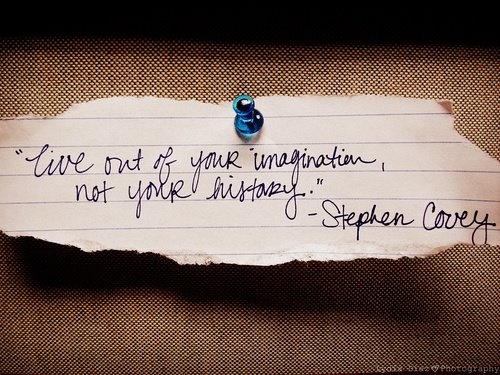 "Live out of your imagination,
not your history."
- Stephen Covey
Lydia Diaz Photography